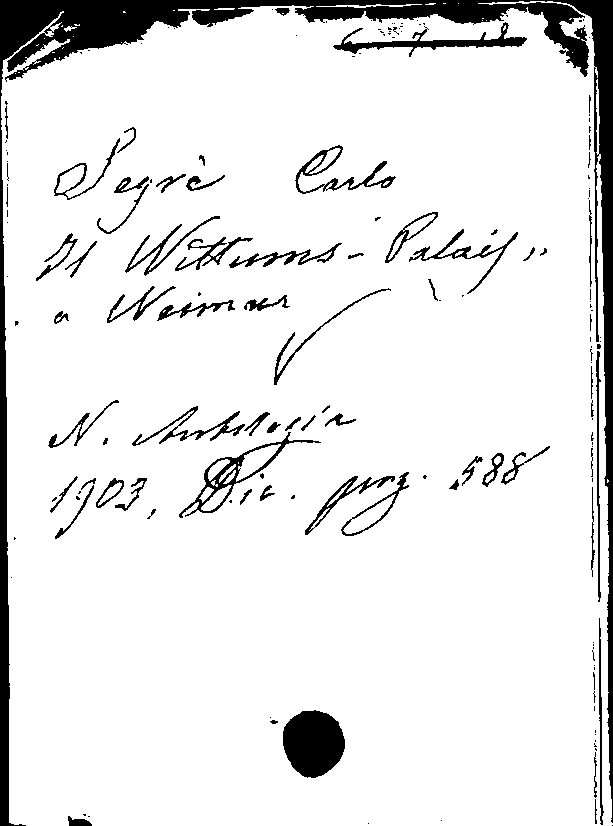 6 7 18
Segrè Carlo
Il Wittums-Palais„
a Weimar
N. Antologia
1903, Dic. pag. 588